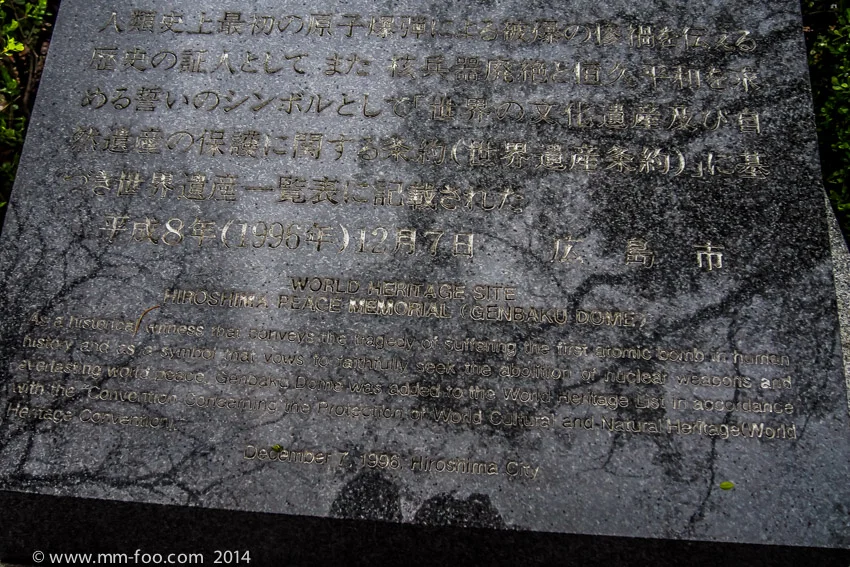 人類史上最初の原子爆弾による被爆の惨禍を伝える
歴史の証人として また 核兵器廃絶と恒久平和を求
める誓いのシンボルとして「世界の文化遺産及び自
然遺産の保護に関する条約(世界遺産条約)」に基
づき世界遺産一覧表に記載された
平成8年(1996年)12月7日 広島市
WORLD HERITAGE SITE
HIROSHIMA PEACE MEMORIAL (GENBAKU DOME)
As a historical witness that conveys the tragedy of suffering the first atomic bomb in human
history and as a symbol that vows to faithfully seek the abolition of nuclear weapons and
everlasting world peace, Genbaku Dome was added to the World Heritage List in accordance
with the "Convention Concerning the Protection of World Cultural and Natural Heritage(World
Heritage Convention)."
December 7, 1996 Hiroshima City
© www.mm-foo.com 2014